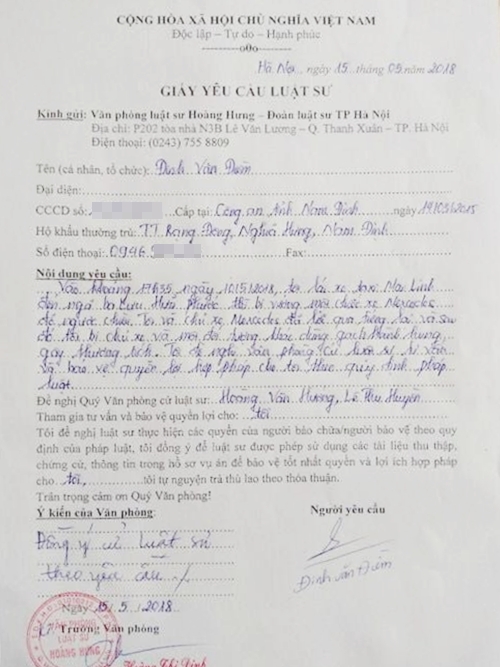 CỘNG HÒA XÃ HỘI CHỦ NGHĨA VIỆT NAM
Độc lập – Tự do – Hạnh phúc
---------o0o---------
Hà Nội, ngày 15 tháng 05 năm 2018
GIẤY YÊU CẦU LUẬT SƯ
Kính gửi: Văn phòng luật sư Hoàng Hưng – Đoàn luật sư TP Hà Nội
Địa chỉ: P202 tòa nhà N3B Lê Văn Lương – Q. Thanh Xuân – TP. Hà Nội
Điện thoại: (0243) 755 8809
Tên (cá nhân, tổ chức): Đinh Văn Điềm
Đại diện:
CCCD số: Cấp tại: Công an tỉnh Nam Định ngày
Hộ khẩu thường trú: TT Rạng Đông, Nghĩa Hưng, Nam Định
Số điện thoại: 0946 Fax:
Nội dung yêu cầu:
Vào khoảng 17h35 ngày 10/5/2018, tôi lái xe taxi Mai Linh
đến ngã ba Lưu Hữu Phước thì bị vướng một chiếc xe Mercedes
đỗ ngược chiều. Tôi và chủ xe Mercedes đã lời qua tiếng lại và sau
đó tôi bị chủ xe và một đối tượng khác dùng gạch đánh
gây thương tích. Tôi đề nghị văn phòng cử luật sư tư vấn
và bảo vệ quyền lợi hợp pháp cho tôi theo quy định pháp
luật.
Đề nghị Quý Văn phòng cử luật sư: Hoàng Văn Hướng, Lê Thu Huyền
Tham gia tư vấn và bảo vệ quyền lợi cho: tôi
Tôi đề nghị luật sư thực hiện các quyền của người bào chữa/người bảo vệ theo quy
định của pháp luật, tôi đồng ý để luật sư được phép sử dụng các tài liệu thu thập,
chứng cứ, thông tin trong hồ sơ vụ án để bảo vệ tốt nhất quyền và lợi ích hợp pháp
cho tôi, tôi tự nguyện trả thù lao theo thỏa thuận.
Trân trọng cảm ơn Quý Văn phòng!
Ý kiến của Văn phòng:
Người yêu cầu
Đồng ý cử luật sư
theo yêu cầu ./.
Đinh văn Điềm
Ngày 15/5/2018
Trưởng Văn phòng
VĂN PHÒNG
LUẬT SƯ
HOÀNG HƯNG